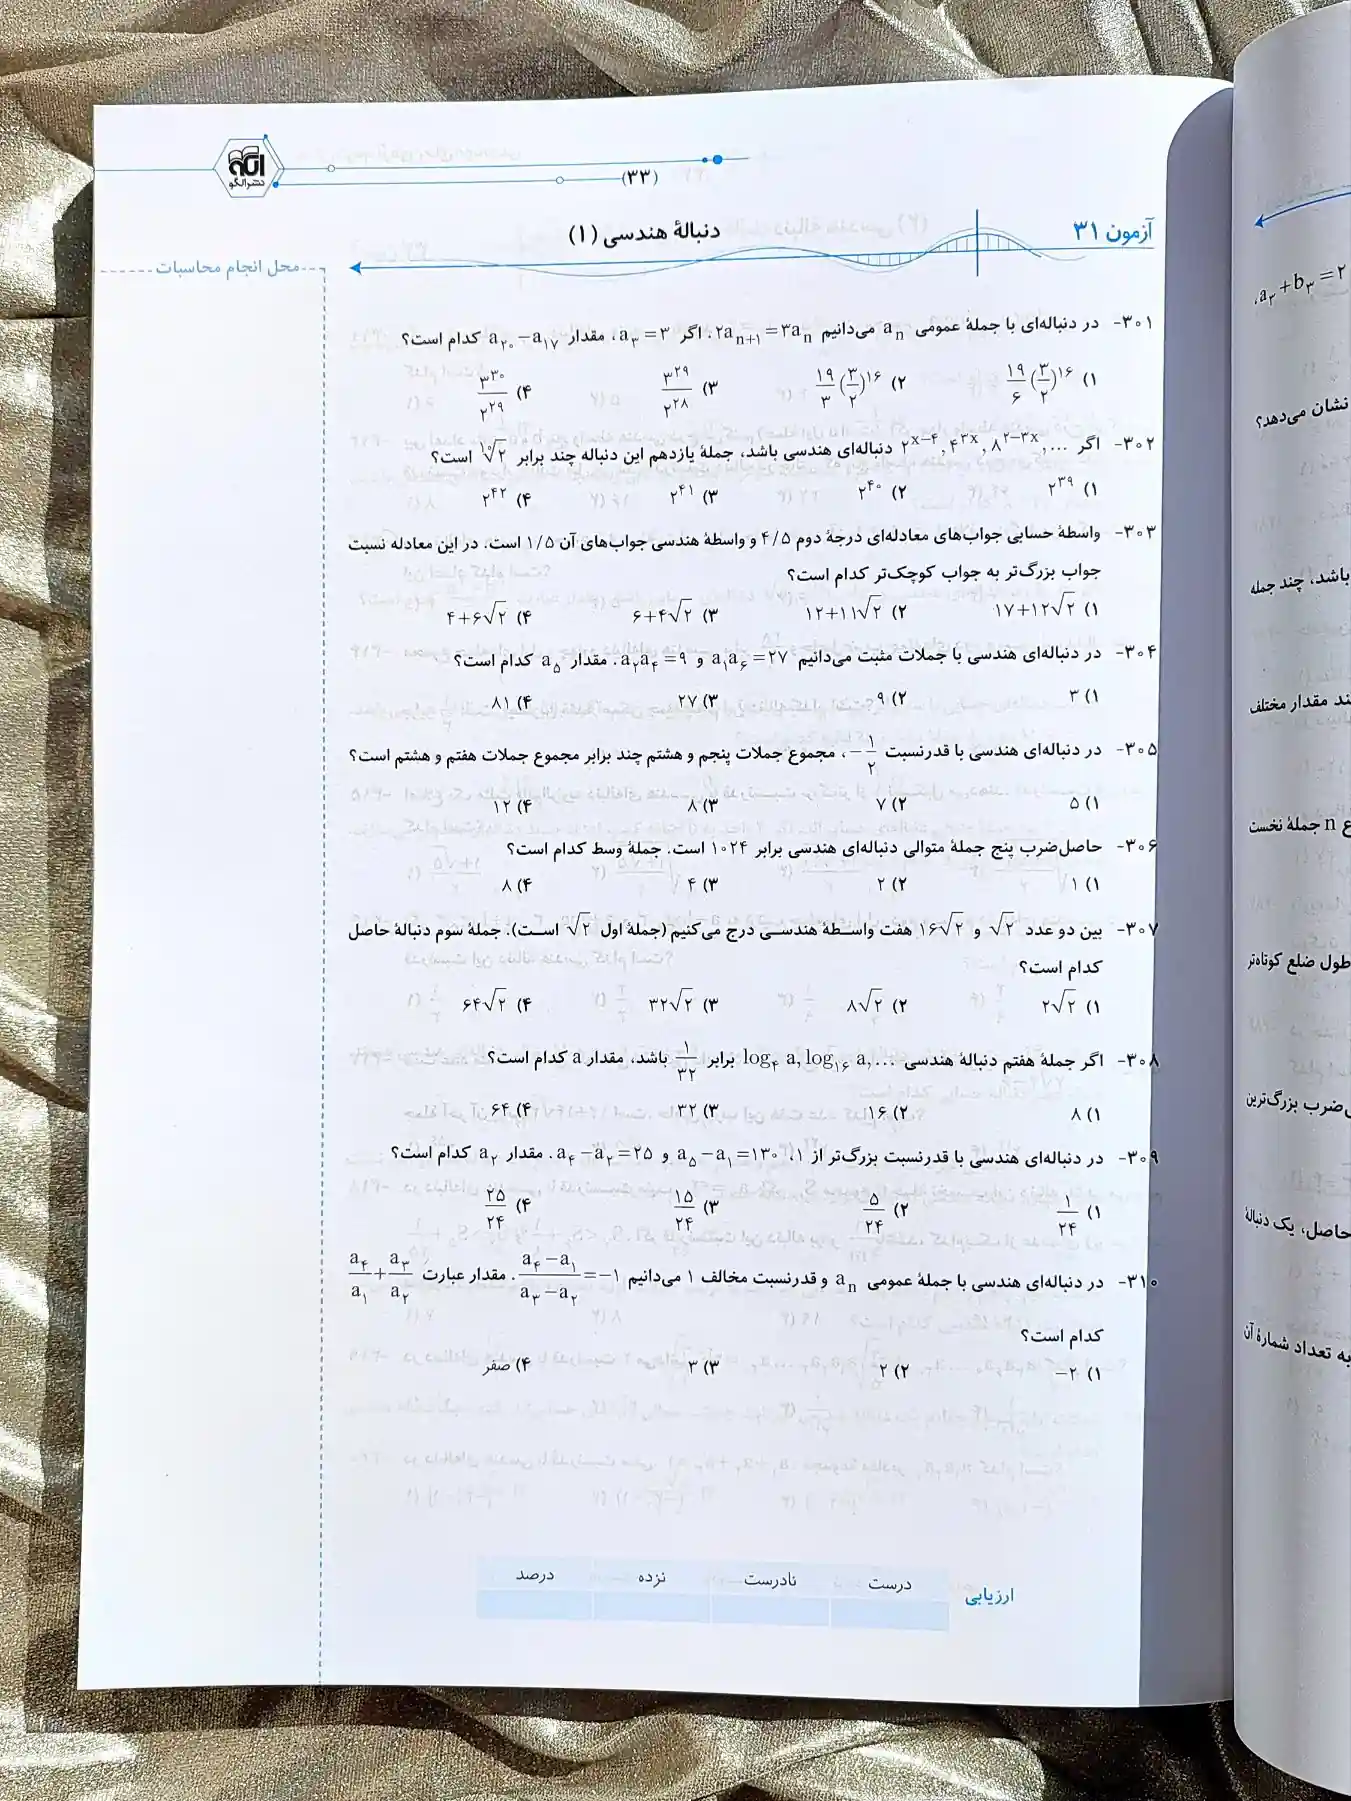 الگو
نشر الگو
(۳۳)
آزمون ۳۱
دنبالهٔ هندسی (۱)
محل انجام محاسبات
۳۰۱- در دنباله‌ای با جملهٔ عمومی aₙ می‌دانیم ۲aₙ₊₁=۳aₙ. اگر a₃=۳، مقدار a₂₀−a₁₇ کدام است؟
۱) ۱۹/۶(۳/۲)^۱۶ ۲) ۱۹/۳(۳/۲)^۱۶ ۳) ۳^۲۹/۲^۲۸ ۴) ۳^۳۰/۲^۲۹
۳۰۲- اگر ...,۲^(x−۴), ۴^(۳x), ۸^(۲−۳x) دنباله‌ای هندسی باشد، جملهٔ یازدهم این دنباله چند برابر ¹⁰√۲ است؟
۱) ۲^۳۹ ۲) ۲^۴۰ ۳) ۲^۴۱ ۴) ۲^۴۲
۳۰۳- واسطهٔ حسابی جواب‌های معادله‌ای درجهٔ دوم ۴/۵ و واسطهٔ هندسی جواب‌های آن ۱/۵ است. در این معادله نسبت
جواب بزرگ‌تر به جواب کوچک‌تر کدام است؟
۱) ۱۷+۱۲√۲ ۲) ۱۲+۱۱√۲ ۳) ۶+۴√۲ ۴) ۴+۶√۲
۳۰۴- در دنباله‌ای هندسی با جملات مثبت می‌دانیم a₁a₆=۲۷ و a₂a₄=۹. مقدار a₅ کدام است؟
۱) ۳ ۲) ۹ ۳) ۲۷ ۴) ۸۱
۳۰۵- در دنباله‌ای هندسی با قدرنسبت −۱/۲، مجموع جملات پنجم و هشتم چند برابر مجموع جملات هفتم و هشتم است؟
۱) ۵ ۲) ۷ ۳) ۸ ۴) ۱۲
۳۰۶- حاصل‌ضرب پنج جملهٔ متوالی دنباله‌ای هندسی برابر ۱۰۲۴ است. جملهٔ وسط کدام است؟
۱) ۱ ۲) ۲ ۳) ۴ ۴) ۸
۳۰۷- بین دو عدد √۲ و ۱۶√۲ هفت واسطهٔ هندسی درج می‌کنیم (جملهٔ اول √۲ است). جملهٔ سوم دنبالهٔ حاصل
کدام است؟
۱) ۲√۲ ۲) ۸√۲ ۳) ۳۲√۲ ۴) ۶۴√۲
۳۰۸- اگر جملهٔ هفتم دنبالهٔ هندسی log₄ a, log₁₆ a, ... برابر ۱/۳۲ باشد، مقدار a کدام است؟
۱) ۸ ۲) ۱۶ ۳) ۳۲ ۴) ۶۴
۳۰۹- در دنباله‌ای هندسی با قدرنسبت بزرگ‌تر از ۱، a₅−a₁=۱۳۰ و a₄−a₂=۲۵. مقدار a₂ کدام است؟
۱) ۱/۲۴ ۲) ۵/۲۴ ۳) ۱۵/۲۴ ۴) ۲۵/۲۴
۳۱۰- در دنباله‌ای هندسی با جملهٔ عمومی aₙ و قدرنسبت مخالف ۱ می‌دانیم (a₄−a₁)/(a₃−a₂)=−۱. مقدار عبارت a₄/a₁+a₃/a₂
کدام است؟
۱) −۲ ۲) ۲ ۳) ۳ ۴) صفر
ارزیابی
درست نادرست نزده درصد
a₃+b₃=۲
نشان می‌دهد؟
باشد، چند جمله
ند مقدار مختلف
ع n جملهٔ نخست
طول ضلع کوتاه‌تر
ضرب بزرگ‌ترین
حاصل، یک دنبالهٔ
به تعداد شمارهٔ آن